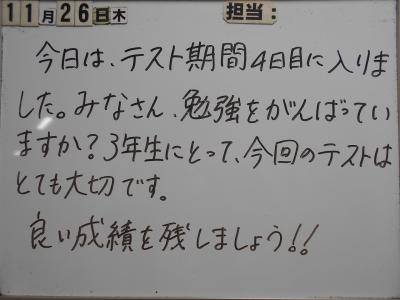 11月26日木 担当:
今日は、テスト期間4日目に入りま
した。みなさん、勉強をがんばってい
ますか?3年生にとって、今回のテストは
とても大切です。
良い成績を残しましょう!!